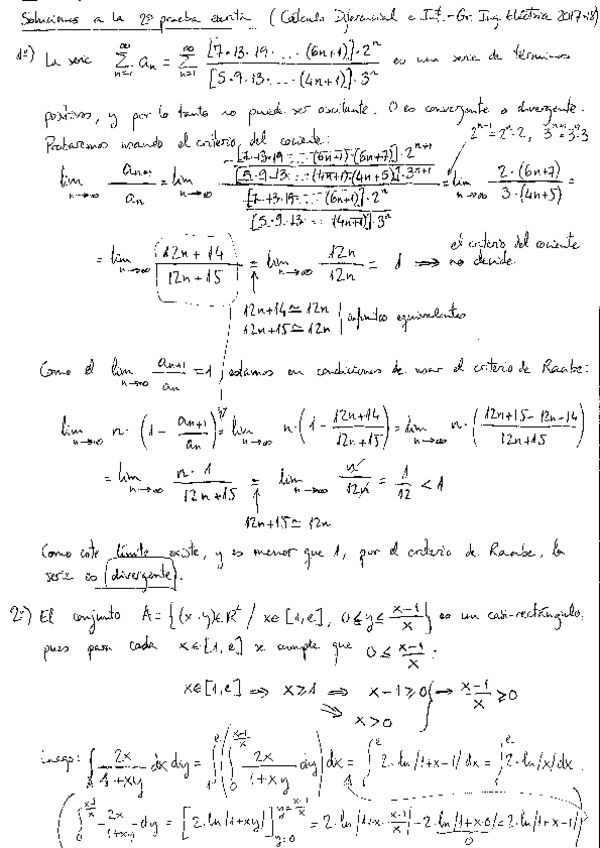 Soluciones a la 2ª prueba escrita (Cálculo Diferencial e Int. - Gr. Ing. Eléctrica 2017-18)
1º) La serie ∑_{n=1}^{∞} a_n = ∑_{n=1}^{∞} [7·13·19·...·(6n+1)]·2^n / [5·9·13·...·(4n+1)]·3^n es una serie de términos
positivos, y por lo tanto no puede ser oscilante. O es convergente o divergente.
Probaremos usando el criterio del cociente: 2^{n+1} = 2^n·2, 3^{n+1} = 3^n·3
lim_{n→∞} a_{n+1}/a_n = lim_{n→∞} ([7·13·19·...·(6n+1)·(6n+7)]·2^{n+1} / [5·9·13·...·(4n+1)·(4n+5)]·3^{n+1}) / ([7·13·19·...·(6n+1)]·2^n / [5·9·13·...·(4n+1)]·3^n) = lim_{n→∞} 2·(6n+7) / 3·(4n+5) =
= lim_{n→∞} (12n+14)/(12n+15) = lim_{n→∞} 12n/12n = 1 ⟹ el criterio del cociente no decide.
12n+14 ≃ 12n
12n+15 ≃ 12n | infinitos equivalentes
Como el lim_{n→∞} a_{n+1}/a_n = 1, estamos en condiciones de usar el criterio de Raabe:
lim_{n→∞} n·(1 − a_{n+1}/a_n) = lim_{n→∞} n·(1 − (12n+14)/(12n+15)) = lim_{n→∞} n·((12n+15−12n−14)/(12n+15))
= lim_{n→∞} n·1/(12n+15) = lim_{n→∞} n/12n = 1/12 < 1
12n+15 ≃ 12n
Como este límite existe, y es menor que 1, por el criterio de Raabe, la
serie es divergente.
2º) El conjunto A = {(x,y)∈R² / x∈[1,e], 0≤y≤(x−1)/x} es un casi-rectángulo,
pues para cada x∈[1,e] se cumple que 0 ≤ (x−1)/x:
x∈[1,e] ⟹ x≥1 ⟹ x−1≥0 } ⟹ (x−1)/x ≥ 0
⟹ x>0
Luego: ∫_A 2x/(1+xy) dx dy = ∫_1^e (∫_0^{(x−1)/x} 2x/(1+xy) dy) dx = ∫_1^e 2·ln|1+x−1| dx = ∫_1^e 2·ln|x| dx
(∫_0^{(x−1)/x} 2x/(1+xy) dy = [2·ln|1+xy|]_{y=0}^{y=(x−1)/x} = 2·ln|1+x·(x−1)/x| − 2·ln|1+x·0| = 2·ln|1+x−1|)
0